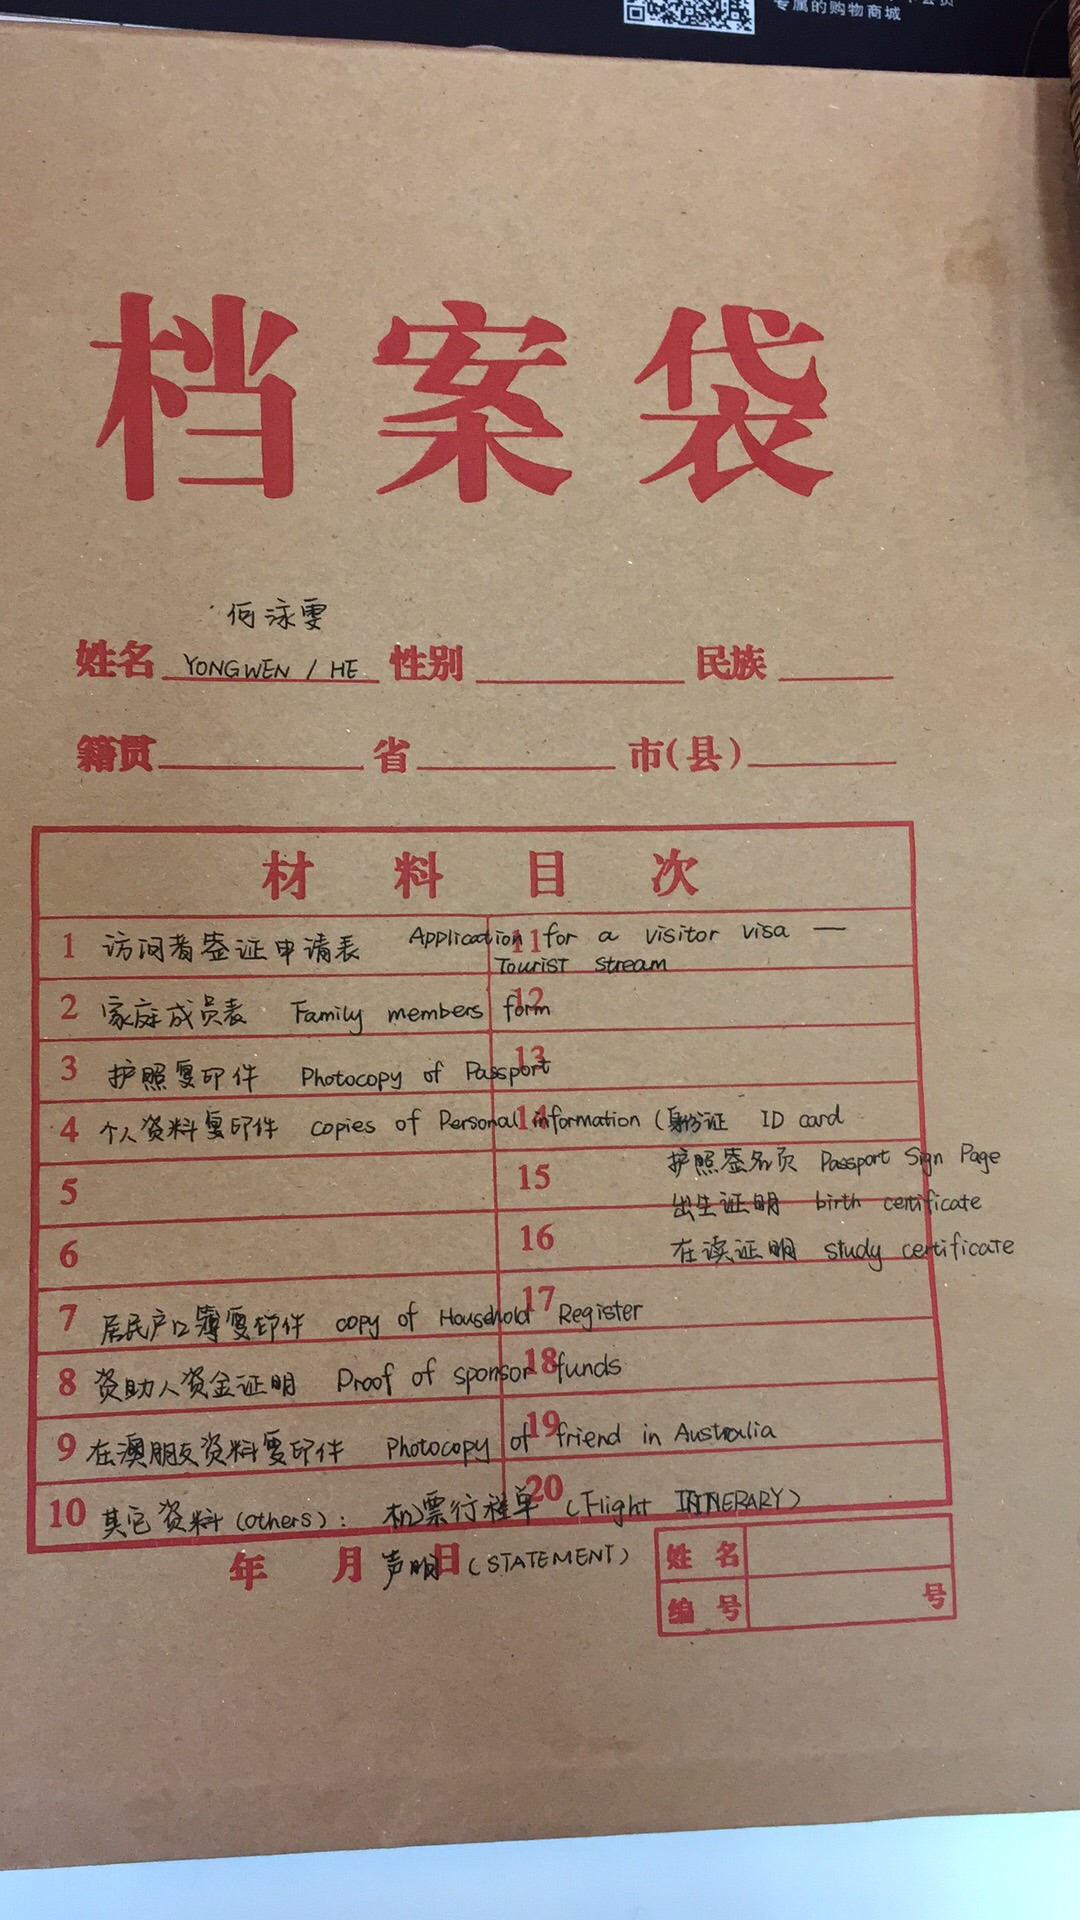 专属的购物商城
档案袋
何泳雯
姓名 YONGWEN / HE 性别 民族
籍贯 省 市(县)
材料目次
1 访问者签证申请表 Application for a visitor visa — 11
Tourist stream
2 家庭成员表 Family members form 12
3 护照复印件 Photocopy of Passport 13
4 个人资料复印件 copies of Personal information (身份证 ID card 14
护照签名页 Passport Sign Page
5 15
出生证明 birth certificate
6 16
在读证明 study certificate
7 居民户口簿复印件 copy of Household Register 17
8 资助人资金证明 Proof of sponsor funds 18
9 在澳朋友资料复印件 Photocopy of friend in Australia 19
10 其它资料(others): 机票行程单 (Flight ITINERARY) 20
年 月 日
声明 (STATEMENT)
姓名
编号 号